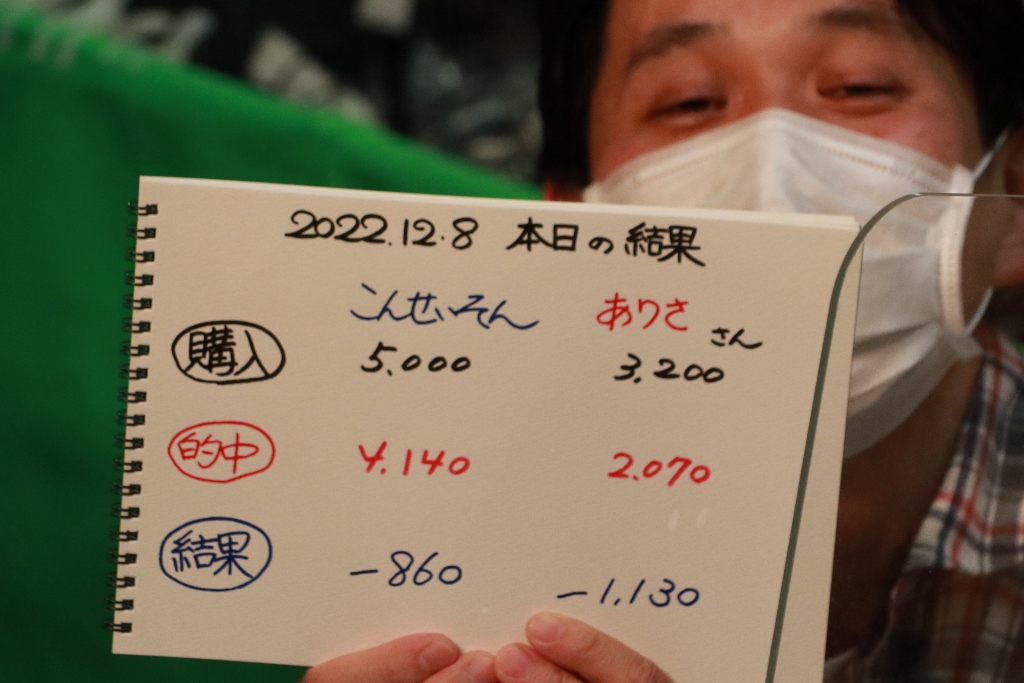 2022.12.8 本日の結果
こんせいそん ありささん
購入 5.000 3,200
的中 4.140 2.070
結果 -860 -1,130